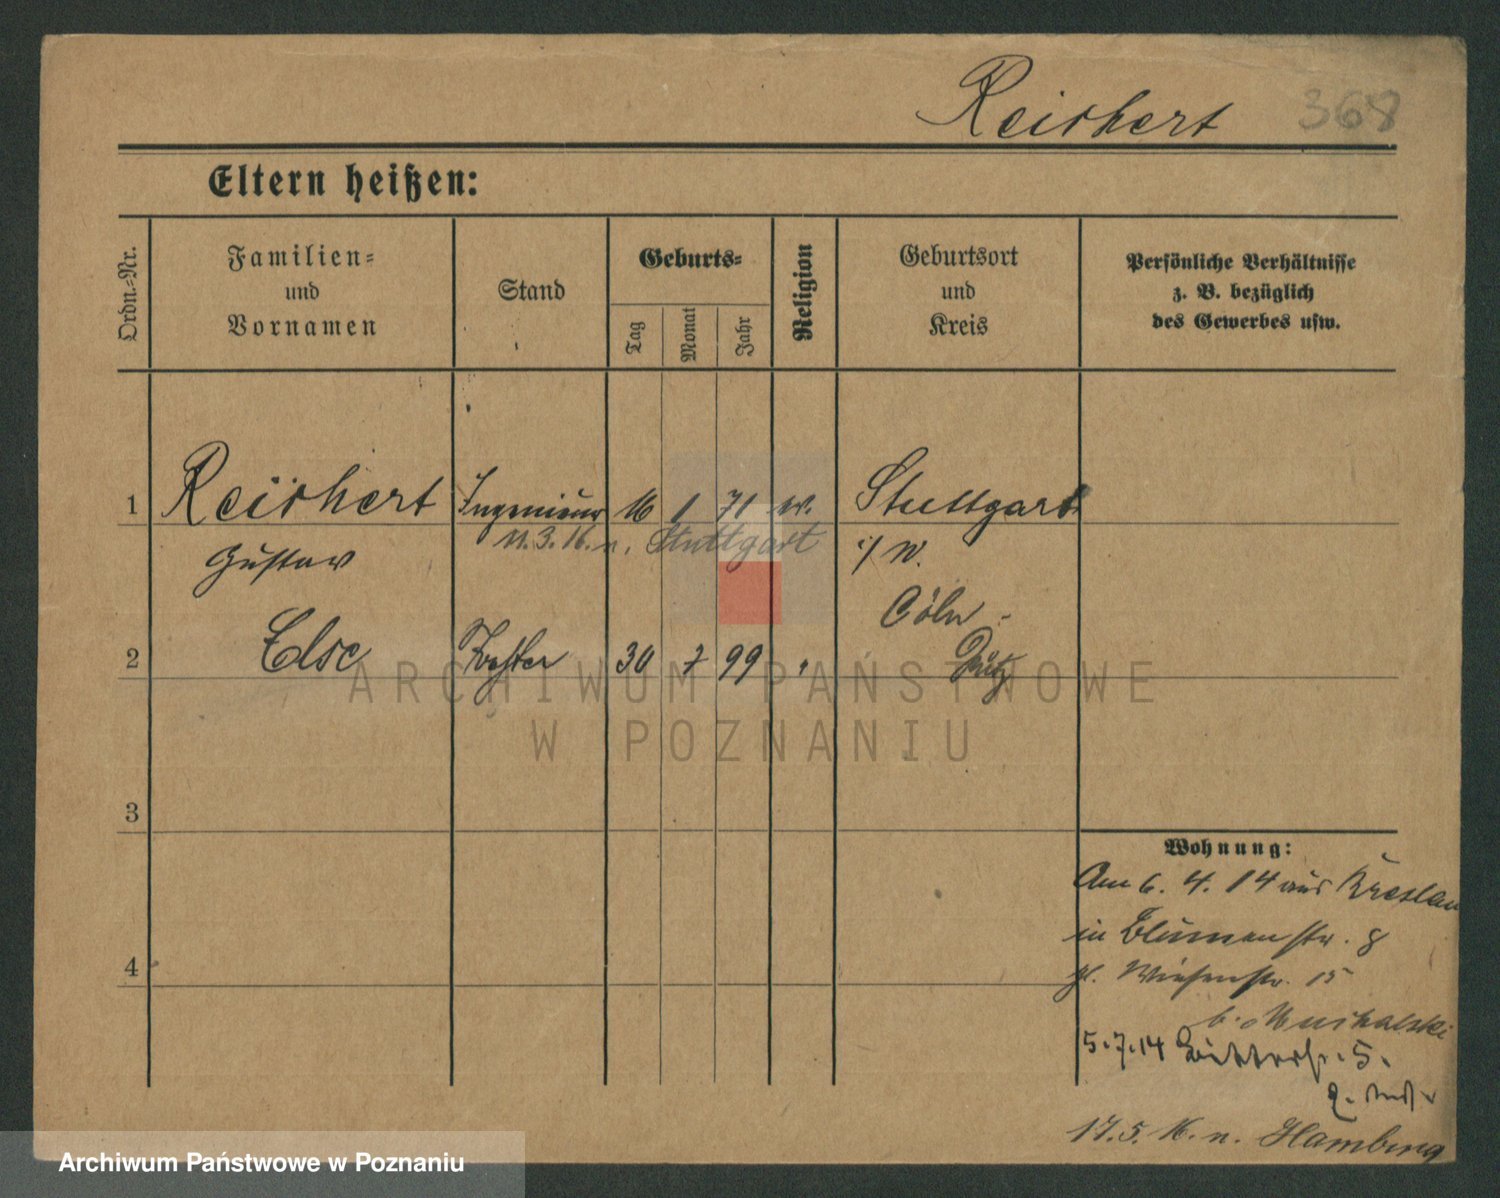 Reichert 368
Eltern heißen:
Ordn.-Nr.
Familien-
und
Vornamen
Stand
Geburts-
Tag
Monat
Jahr
Religion
Geburtsort
und
Kreis
Persönliche Verhältnisse
z. B. bezüglich
des Gewerbes usw.
1 Reichert Ingenieur 16 1 71 ev. Stuttgart
11.3.16. n. Stuttgart
Gustav i/W.
Cöln -
2 Else Tochter 30 7 99 " Deutz
ARCHIWUM PAŃSTWOWE
W POZNANIU
3
Wohnung:
Am 6. 4. 14 aus Breslau
in Blumenstr. 8
4
Wiesenstr. 15
b. Muchalski
5.7.14 Ritterstr. 5.
17.5.16. n. Hamburg
Archiwum Państwowe w Poznaniu